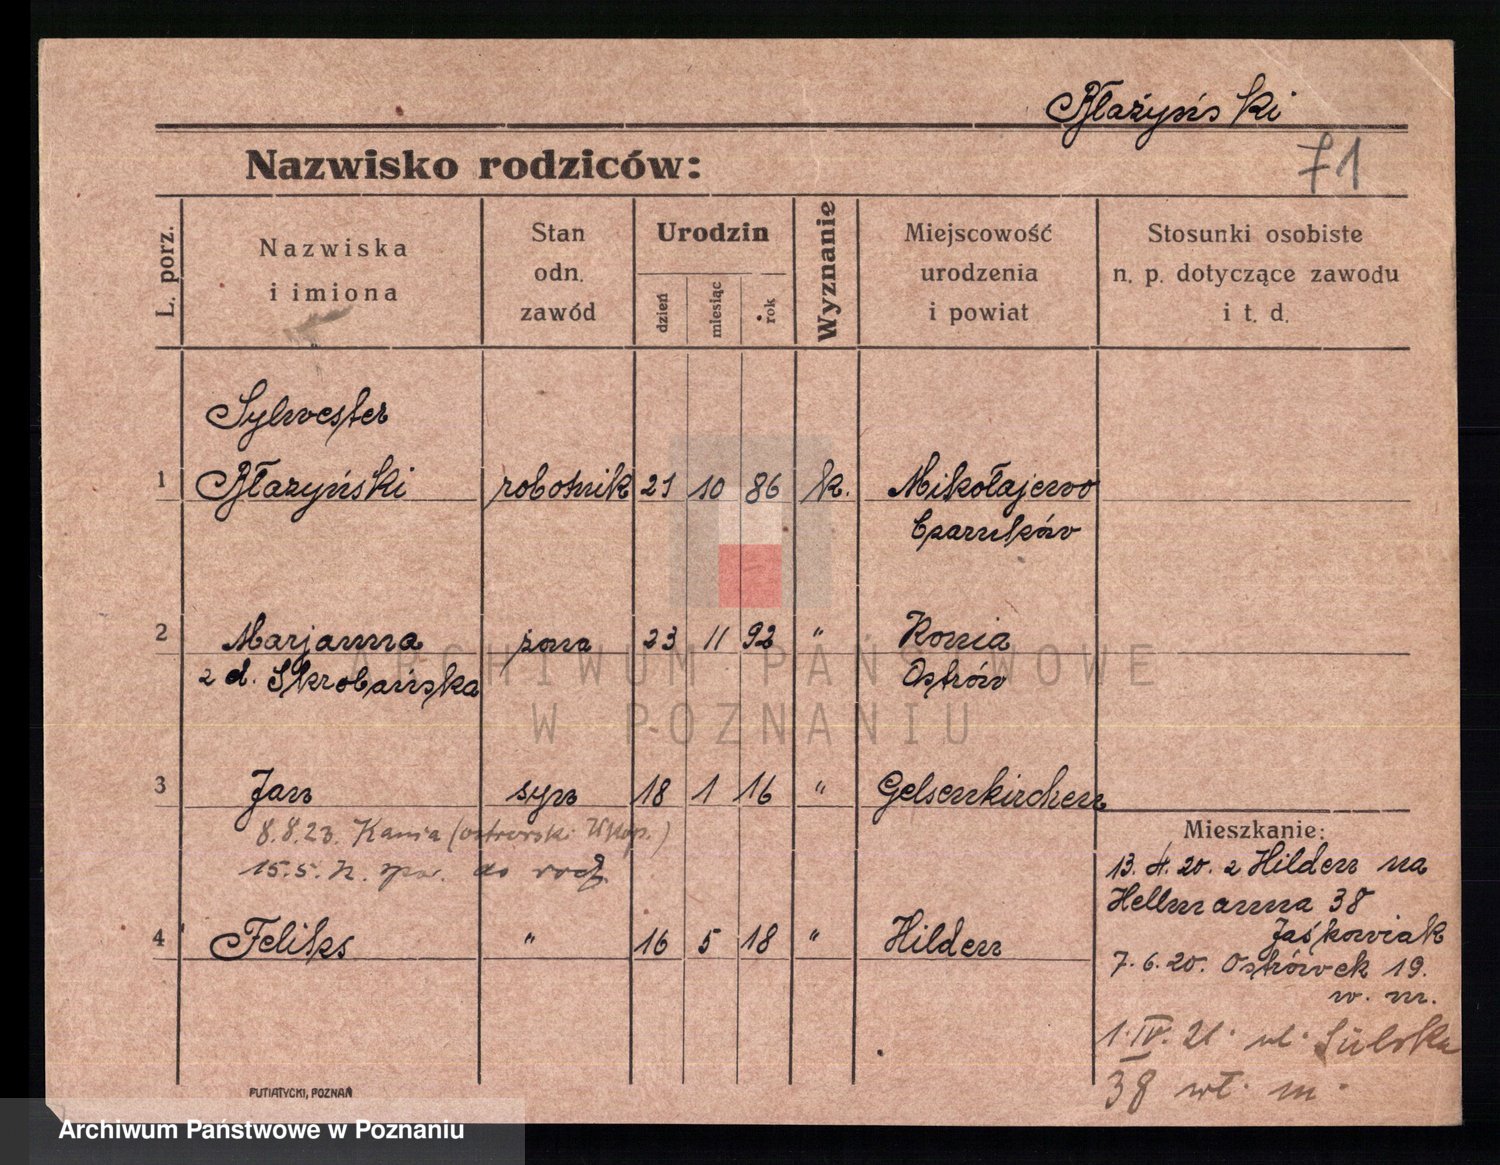 Błażyński
71
Nazwisko rodziców:
L. porz.
Nazwiska
i imiona
Stan
odn.
zawód
Urodzin
dzień
miesiąc
rok
Wyznanie
Miejscowość
urodzenia
i powiat
Stosunki osobiste
n. p. dotyczące zawodu
i t. d.
Sylwester
1 Błażyński robotnik 21 10 86 k. Mikołajewo
Czarnków
2 Marjanna żona 23 11 92 " Konia
z d. Skrobańska Ostrów
3 Jan syn 18 1 16 " Gelsenkirchen
8.8.23. Kania (ostrowski Wlkp.)
15.5. do rodz.
Mieszkanie:
13. 4. 20. z Hilden na
Hellmanna 38
Jaśkowiak
4 Feliks " 16 5 18 " Hilden
7. 6. 20. Ostrówek 19.
w. m.
1. IV. 21. ul.
38 wł. m.
PUTIATYCKI, POZNAŃ
ARCHIWUM PAŃSTWOWE
W POZNANIU
Archiwum Państwowe w Poznaniu